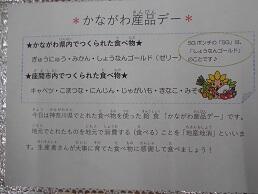 ＊かながわ産品デー＊
★かながわ県内でつくられた食べ物★
ぎゅうにゅう・みかん・しょうなんゴールド（ゼリー）
★座間市内でつくられた食べ物★
キャベツ・こまつな・にんじん・じゃがいも・きなこ・みそ
SGポンチの「SG」は、
「しょうなんゴールド」
のことです♪
今日は神奈川県でとれた食べ物を使った給食「かながわ産品デー」です。
地元でとれたものを地元で消費する（食べる）ことを「地産地消」といいま
す。生産者さんが大事に育てた食べ物に感謝して食べましょう！